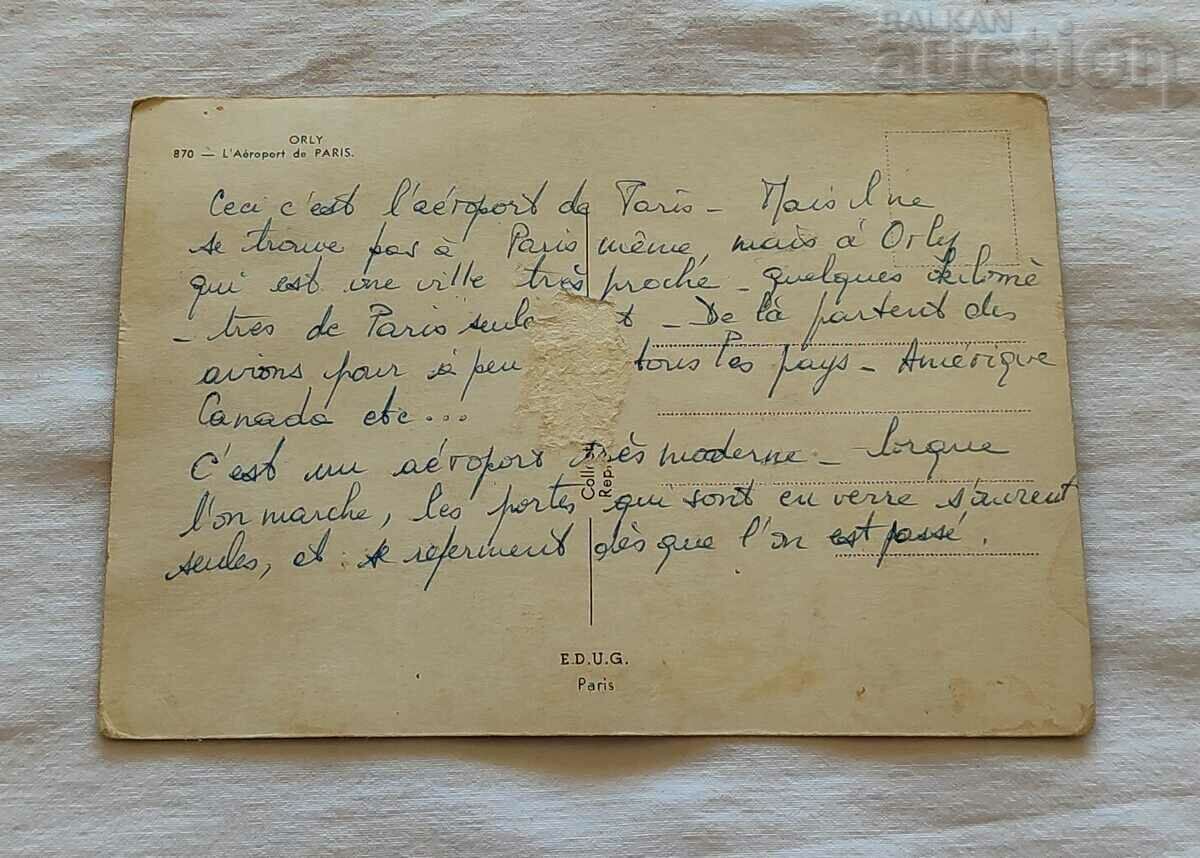 BALKAN
auction
ORLY
870 — L'Aéroport de PARIS.
Ceci c'est l'aéroport de Paris - Mais il ne
se trouve pas à Paris même, mais à Orly
qui est une ville très proche - quelques kilomè
- tres de Paris - De là partent des
avions pour à peu tous les pays - Amérique
Canada etc...
C'est un aéroport très moderne - lorque
l'on marche, les portes qui sont en verre s'auvrent
seules, et se referment dès que l'on est passé.
E.D.U.G.
Paris